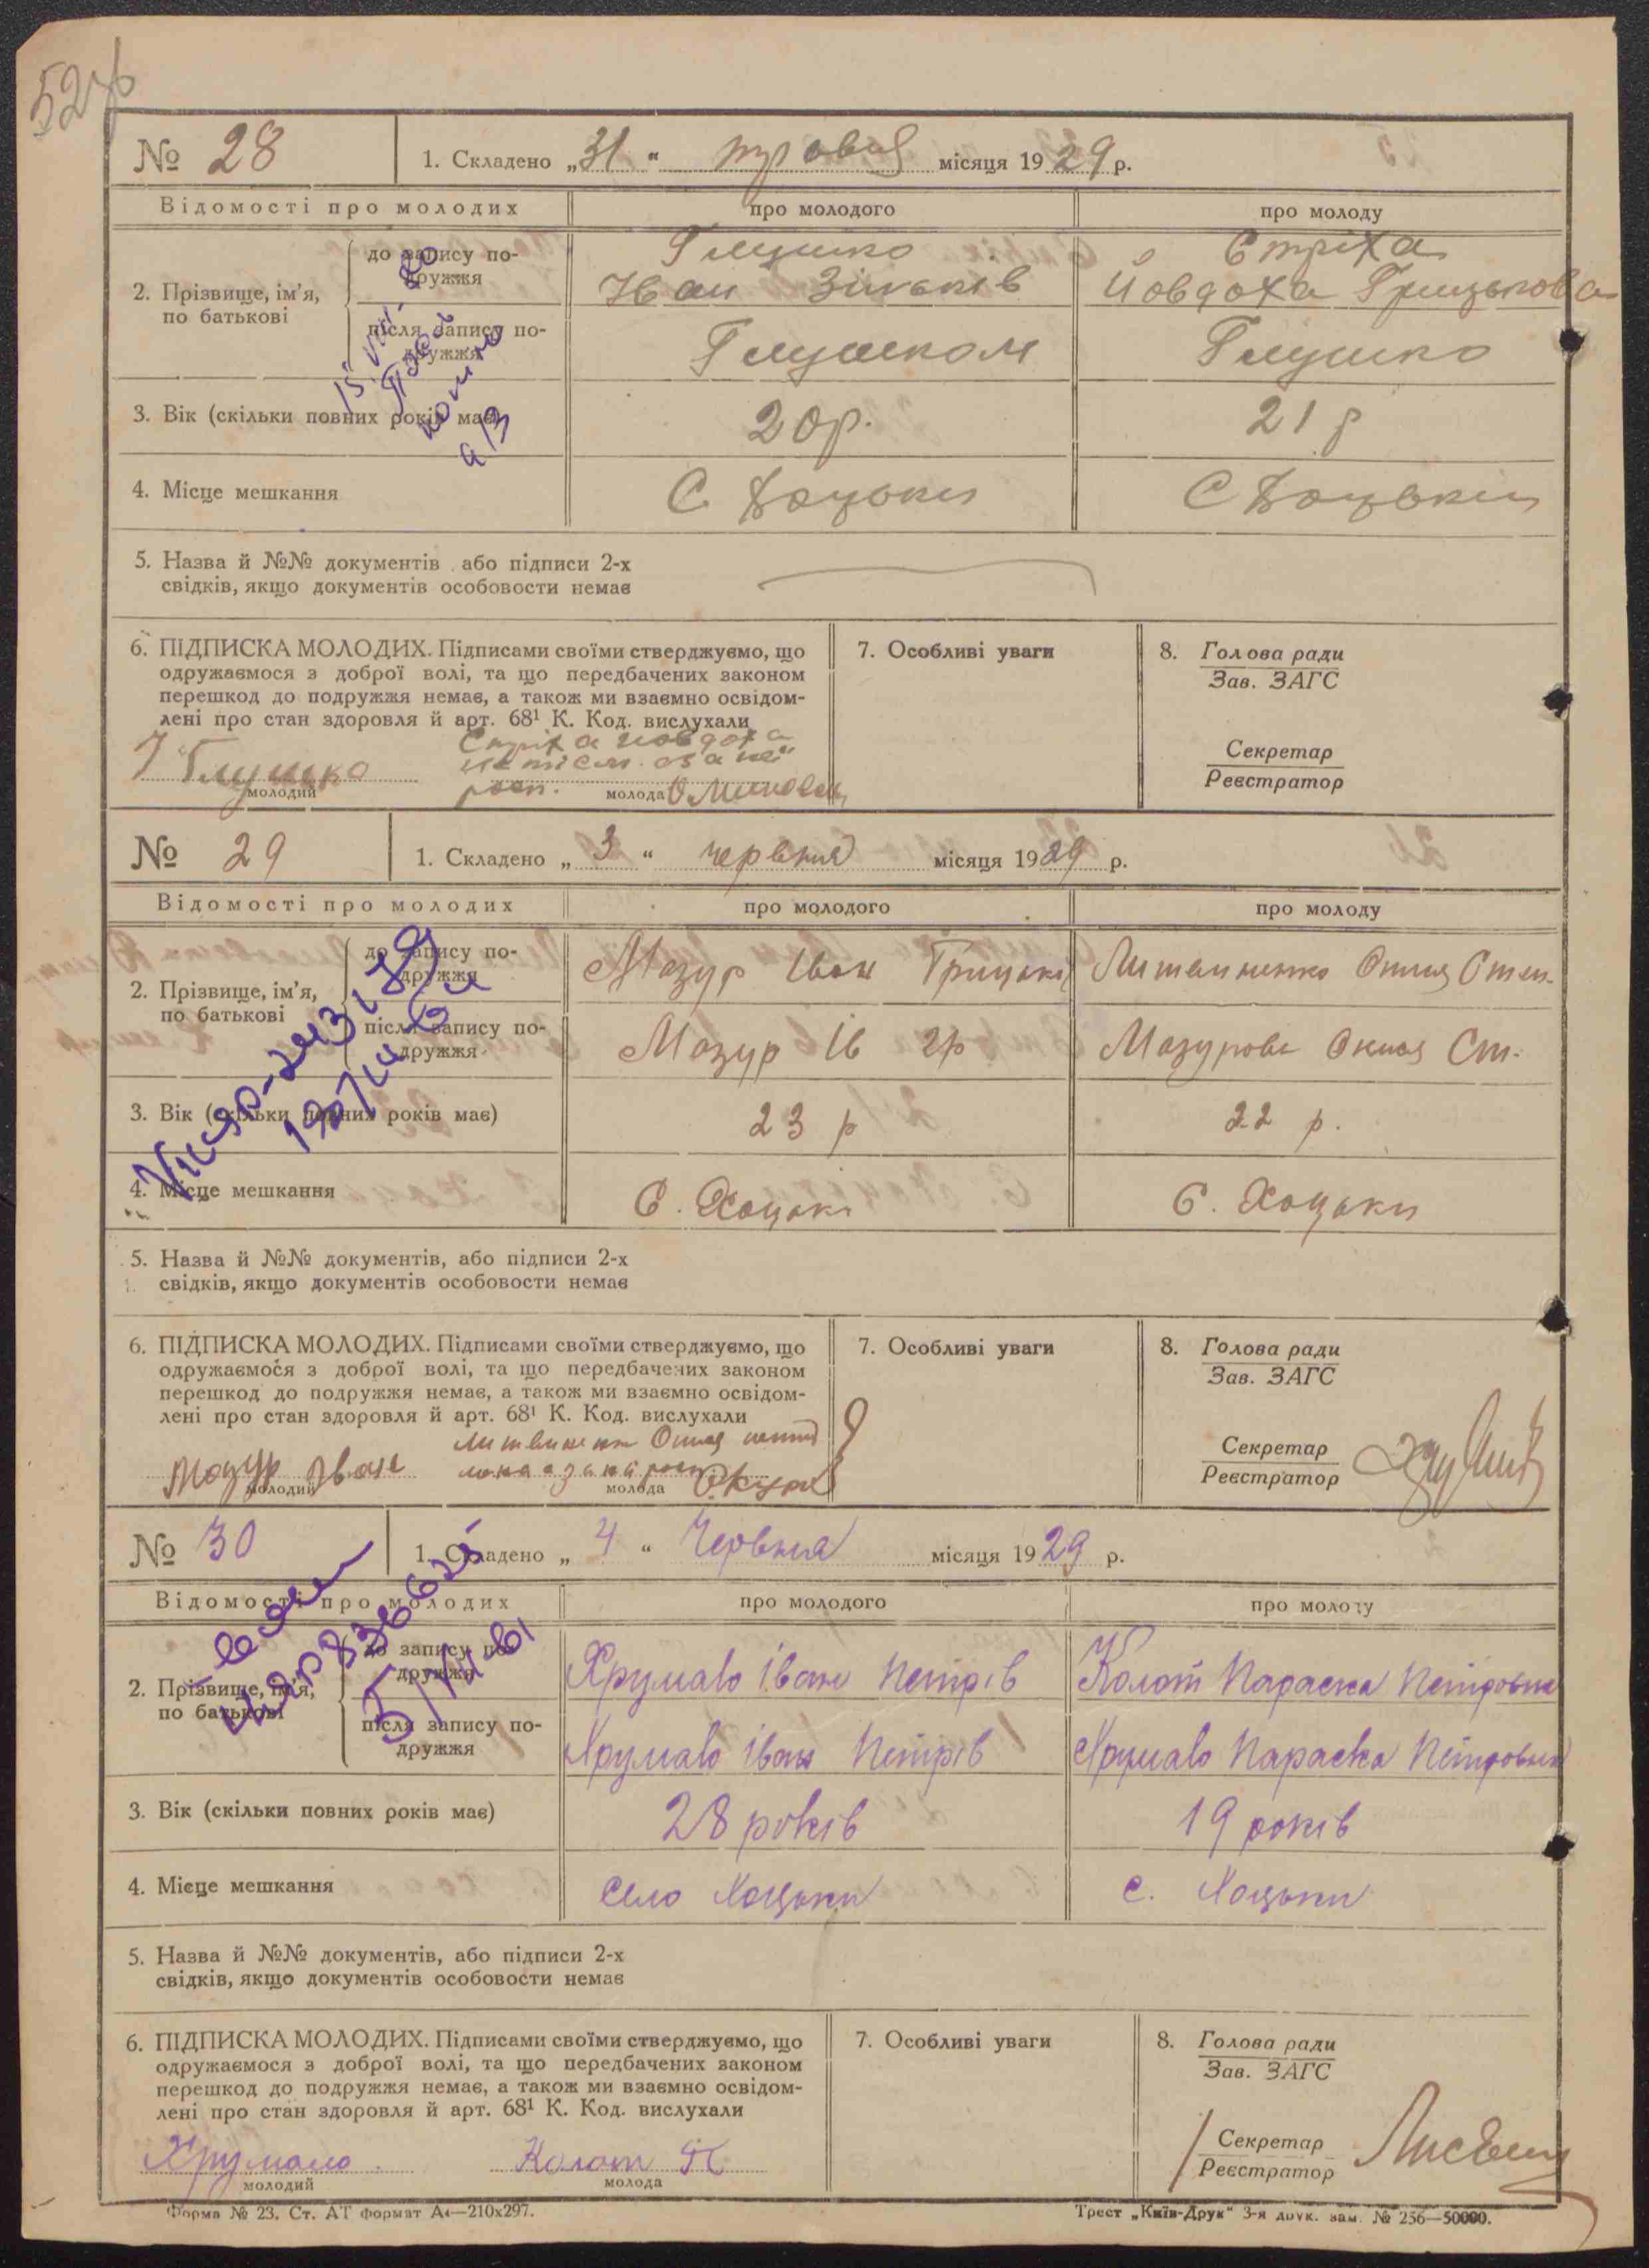 № 28
1. Складено „31“ травня місяця 1929 р.
Відомості про молодих
про молодого
про молоду
2. Прізвище, ім'я, по батькові
до запису подружжя
Глушко
Іван Зіньків
Стріха
Йовдоха Грицькова
після запису подружжя
Глушком
Глушко
3. Вік (скільки повних років має)
20 р.
21 р
4. Місце мешкання
С Хоцьки
С Хоцьки
5. Назва й №№ документів або підписи 2-х
свідків, якщо документів особовости немає
6. ПІДПИСКА МОЛОДИХ. Підписами своїми стверджуємо, що
одружаємося з доброї волі, та що передбачених законом
перешкод до подружжя немає, а також ми взаємно освідом-
лені про стан здоровля й арт. 68¹ К. Код. вислухали
Стріха Йовдоха
І Глушко
неписм. за неї
розп.
молодий
молода
7. Особливі уваги
8. Голова ради
Зав. ЗАГС
Секретар
Реєстратор
№ 29
1. Складено „3“ червня місяця 1929 р.
Відомості про молодих
про молодого
про молоду
2. Прізвище, ім'я, по батькові
до запису подружжя
Мазур Іван Грицькі
Литвиненко Оникія Степ.
після запису подружжя
Мазур Ів Гр
Мазурова Оникія Ст.
3. Вік (скільки повних років має)
23 р
22 р.
4. Місце мешкання
С. Хоцьки
С. Хоцьки
5. Назва й №№ документів, або підписи 2-х
свідків, якщо документів особовости немає
6. ПІДПИСКА МОЛОДИХ. Підписами своїми стверджуємо, що
одружаємося з доброї волі, та що передбачених законом
перешкод до подружжя немає, а також ми взаємно освідом-
лені про стан здоровля й арт. 68¹ К. Код. вислухали
Мазур Іван
молодий
молода
7. Особливі уваги
8. Голова ради
Зав. ЗАГС
Секретар
Реєстратор
№ 30
1. Складено „4“ Червня місяця 1929 р.
Відомості про молодих
про молодого
про молоду
2. Прізвище, ім'я, по батькові
до запису подружжя
Хрумало Іван Петрів
Колот Параска Петровна
після запису подружжя
Хрумало Іван Петрів
Хрумало Параска Петровна
3. Вік (скільки повних років має)
28 років
19 років
4. Місце мешкання
село Хоцьки
с. Хоцьки
5. Назва й №№ документів, або підписи 2-х
свідків, якщо документів особовости немає
6. ПІДПИСКА МОЛОДИХ. Підписами своїми стверджуємо, що
одружаємося з доброї волі, та що передбачених законом
перешкод до подружжя немає, а також ми взаємно освідом-
лені про стан здоровля й арт. 68¹ К. Код. вислухали
Хрумало
Колот П
молодий
молода
7. Особливі уваги
8. Голова ради
Зав. ЗАГС
Секретар
Реєстратор
Форма № 23. Ст. АТ формат А4—210x297.
Трест „Київ-Друк“ 3-я друк. зам. № 256—50000.